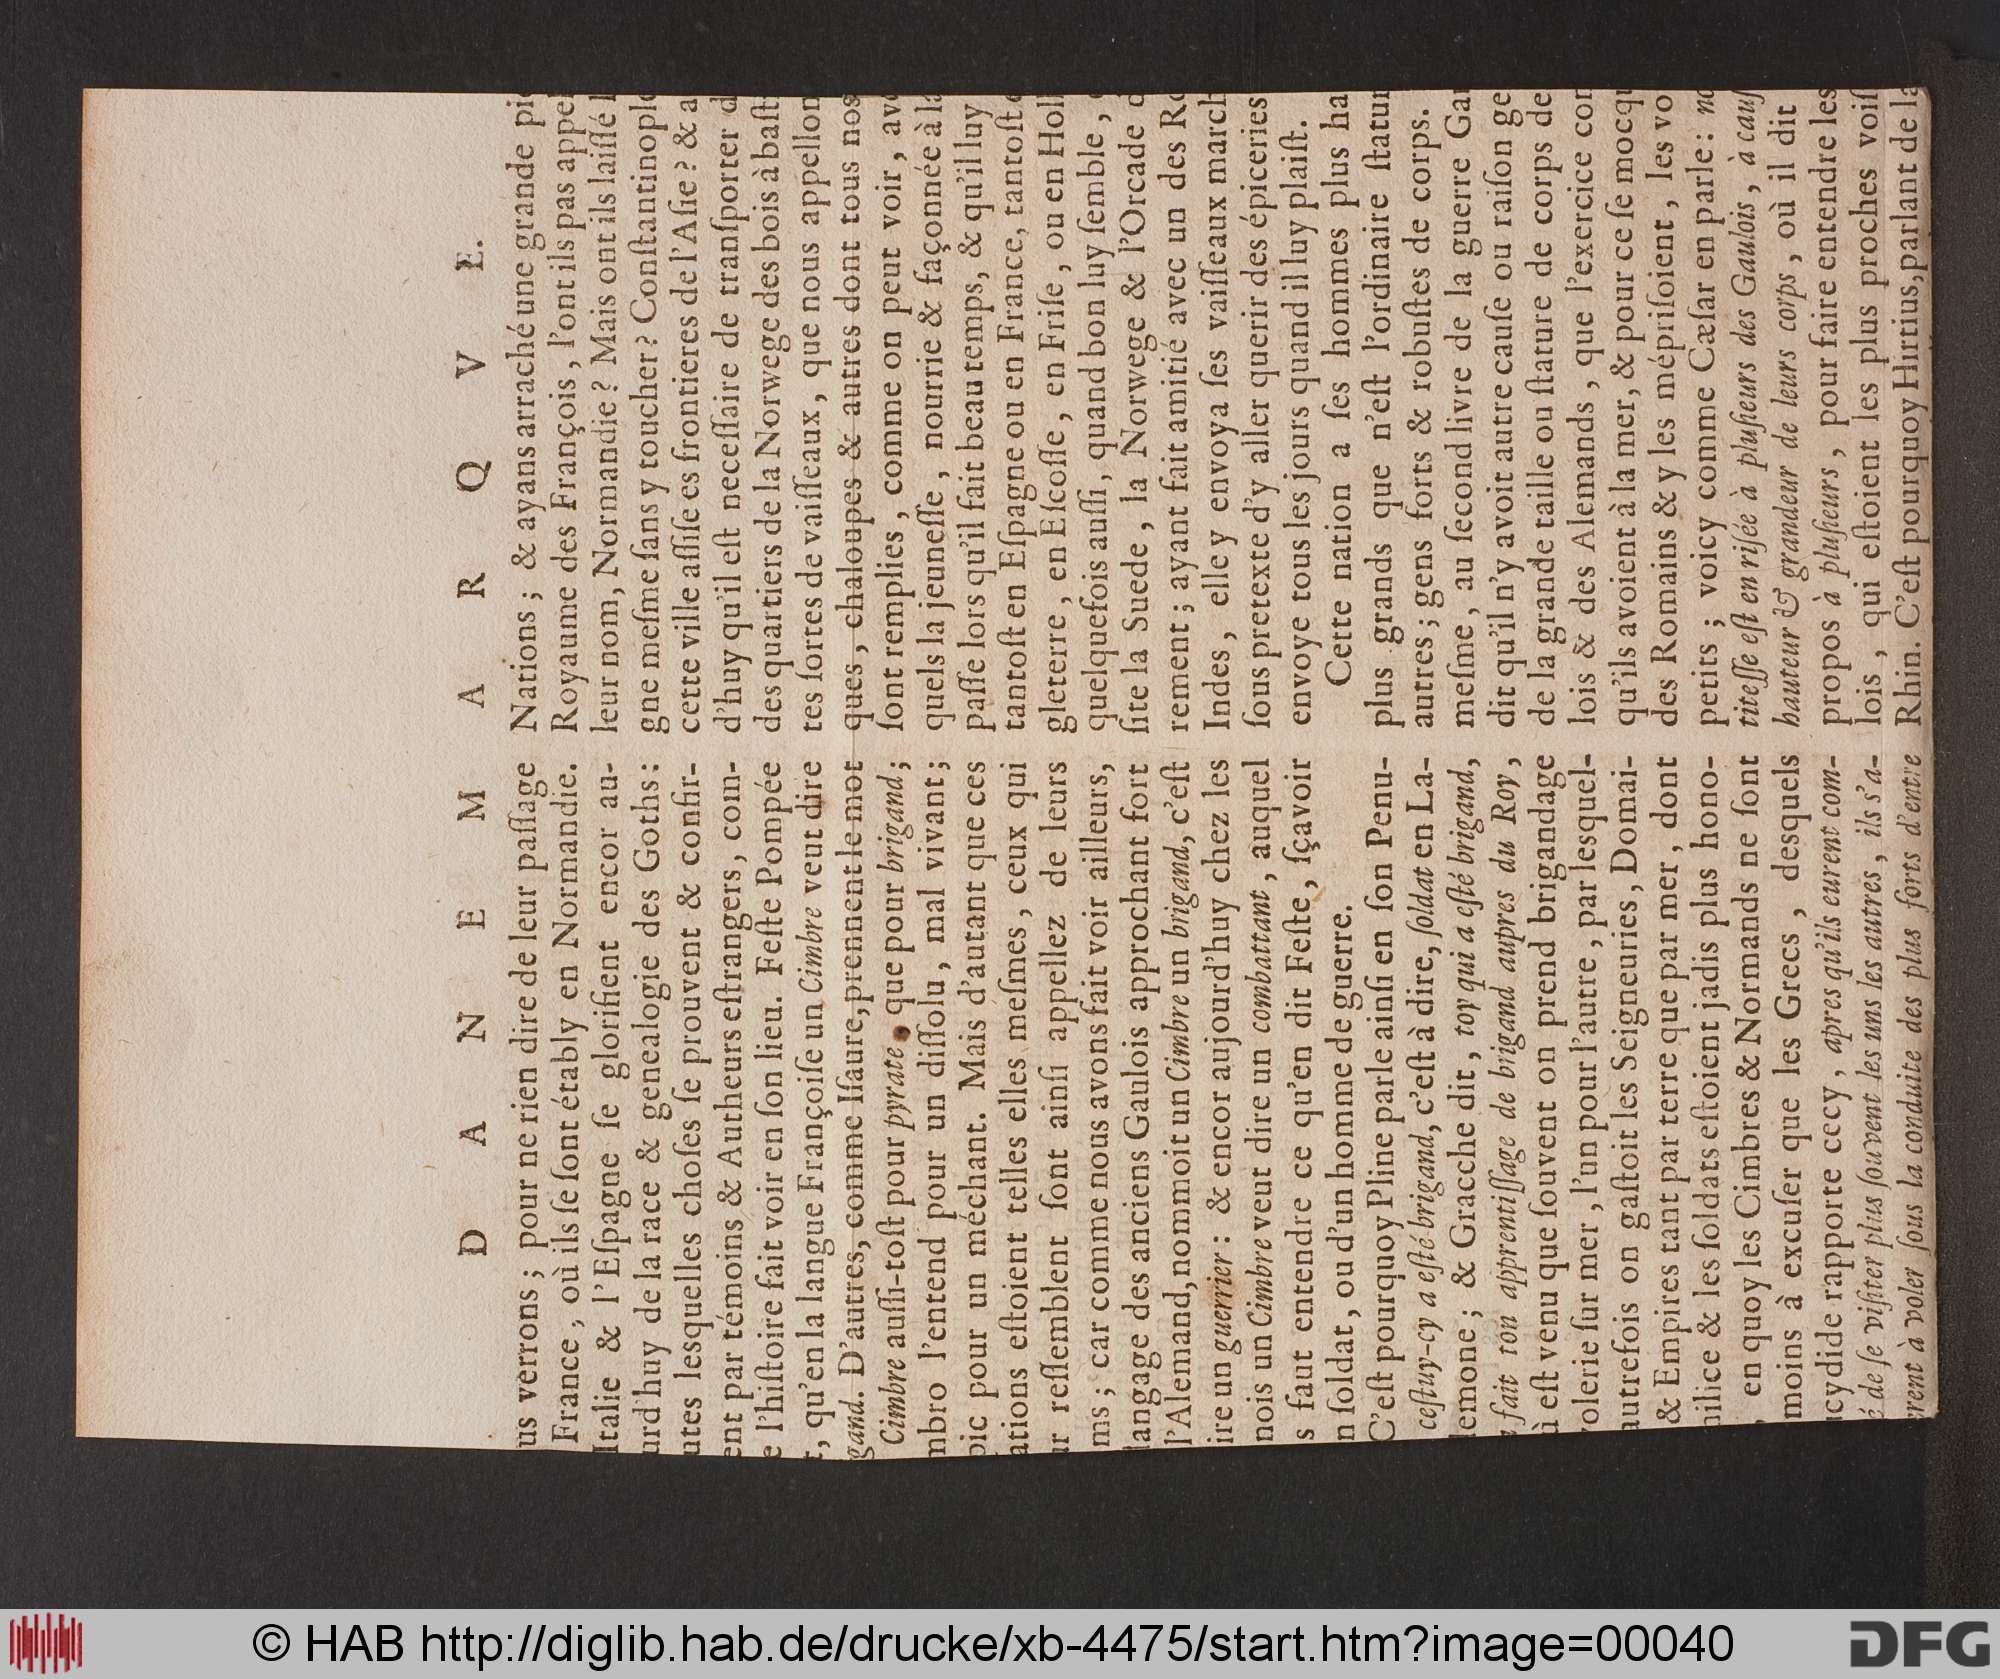 DANEMARQVE.
us verrons ; pour ne rien dire de leur paſſage
France, où ils ſe ſont étably en Normandie.
Italie & l'Eſpagne ſe glorifient encor au-
urd'huy de la race & genealogie des Goths :
utes lesquelles choſes ſe prouvent & confir-
ent par témoins & Autheurs eſtrangers, com-
e l'hiſtoire fait voir en ſon lieu. Feſte Pompée
t, qu'en la langue Françoiſe un Cimbre veut dire
gand. D'autres, comme Iſaure, prennent le mot
Cimbre auſſi-toſt pour pyrate que pour brigand ;
mbro l'entend pour un diſſolu, mal vivant ;
pic pour un méchant. Mais d'autant que ces
ations eſtoient telles elles meſmes, ceux qui
ur reſſemblent ſont ainſi appellez de leurs
ms ; car comme nous avons fait voir ailleurs,
langage des anciens Gaulois approchant fort
l'Alemand, nommoit un Cimbre un brigand, c'eſt
ire un guerrier : & encor aujourd'huy chez les
nois un Cimbre veut dire un combattant, auquel
s faut entendre ce qu'en dit Feſte, ſçavoir
n ſoldat, ou d'un homme de guerre.
C'eſt pourquoy Pline parle ainſi en ſon Penu-
ceſtuy-cy a eſté brigand, c'eſt à dire, ſoldat en La-
lemone ; & Gracche dit, toy qui a eſté brigand,
fait ton apprentiſſage de brigand aupres du Roy,
ù eſt venu que ſouvent on prend brigandage
olerie ſur mer, l'un pour l'autre, par lesquel-
autrefois on gaſtoit les Seigneuries, Domai-
& Empires tant par terre que par mer, dont
nilice & les ſoldats eſtoient jadis plus hono-
, en quoy les Cimbres & Normands ne ſont
moins à excuſer que les Grecs, desquels
ucydide rapporte cecy, apres qu'ils eurent com-
é de ſe viſiter plus ſouvent les uns les autres, ils s'a-
rent à voler ſous la conduite des plus forts d'entre
Nations ; & ayans arraché une grande pie
Royaume des François, l'ont ils pas appel
leur nom, Normandie ? Mais ont ils laiſſé l
gne meſme ſans y toucher ? Conſtantinople
cette ville aſſiſe es frontieres de l'Aſie ? & a
d'huy qu'il eſt neceſſaire de tranſporter d
des quartiers de la Norwege des bois à baſt
tes ſortes de vaiſſeaux, que nous appellon
ques, chaloupes & autres dont tous nos
ſont remplies, comme on peut voir, ave
quels la jeuneſſe, nourrie & façonnée à la
paſſe lors qu'il fait beau temps, & qu'il luy
tantoſt en Eſpagne ou en France, tantoſt e
gleterre, en Eſcoſſe, en Friſe, ou en Holl
quelquefois auſſi, quand bon luy ſemble,
ſite la Suede, la Norwege & l'Orcade d
rement ; ayant fait amitié avec un des Ro
Indes, elle y envoya ſes vaiſſeaux march
ſous pretexte d'y aller querir des épiceries
envoye tous les jours quand il luy plaiſt.
Cette nation a ſes hommes plus ha
plus grands que n'eſt l'ordinaire ſtatur
autres ; gens forts & robuſtes de corps.
meſme, au ſecond livre de la guerre Gau
dit qu'il n'y avoit autre cauſe ou raiſon ge
de la grande taille ou ſtature de corps de
lois & des Alemands, que l'exercice con
qu'ils avoient à la mer, & pour ce ſe mocqu
des Romains & y les mépriſoient, les vo
petits ; voicy comme Cæſar en parle : no
titeſſe eſt en riſée à pluſieurs des Gaulois, à cauſ
hauteur & grandeur de leurs corps, où il dit
propos à pluſieurs, pour faire entendre les
lois, qui eſtoient les plus proches voiſ
Rhin. C'eſt pourquoy Hirtius, parlant de la
© HAB http://diglib.hab.de/drucke/xb-4475/start.htm?image=00040
DFG